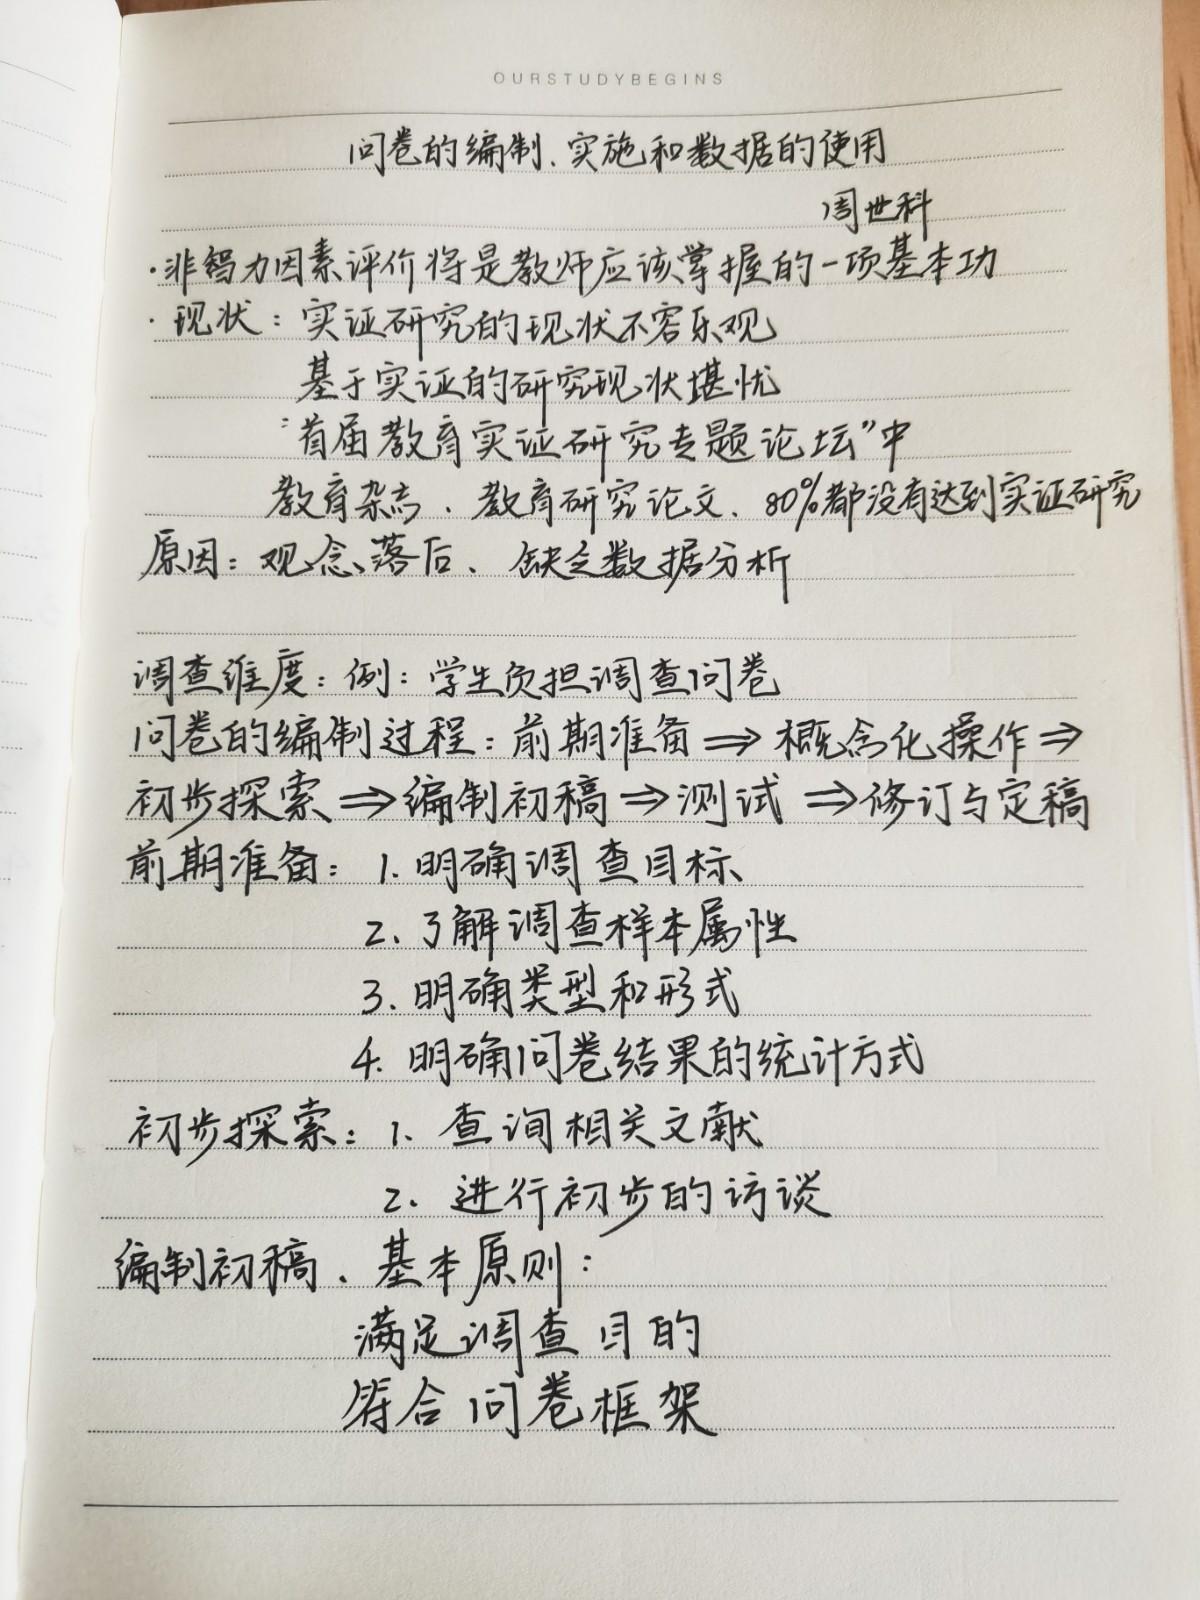 OURSTUDYBEGINS
问卷的编制、实施和数据的使用
周世科
·非智力因素评价将是教师应该掌握的一项基本功
·现状：实证研究的现状不容乐观
基于实证的研究现状堪忧
"首届教育实证研究专题论坛"中
教育杂志、教育研究论文、80%都没有达到实证研究
原因：观念落后、缺乏数据分析
调查维度：例：学生负担调查问卷
问卷的编制过程：前期准备⇒概念化操作⇒
初步探索⇒编制初稿⇒测试⇒修订与定稿
前期准备：1.明确调查目标
2.了解调查样本属性
3.明确类型和形式
4.明确问卷结果的统计方式
初步探索：1.查询相关文献
2.进行初步的访谈
编制初稿、基本原则：
满足调查目的
符合问卷框架